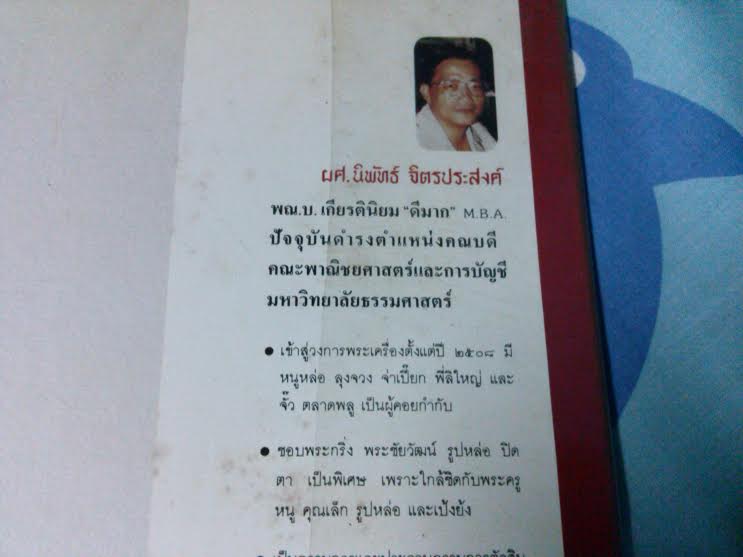 ผศ.นิพัทธ์ จิตรประสงค์
พณ.บ. เกียรตินิยม “ดีมาก” M.B.A.
ปัจจุบันดำรงตำแหน่งคณบดี
คณะพาณิชยศาสตร์และการบัญชี
มหาวิทยาลัยธรรมศาสตร์
● เข้าสู่วงการพระเครื่องตั้งแต่ปี ๒๕๐๘ มี
หนูหล่อ ลุงจวง จ่าเปี๊ยก พี่ลิใหญ่ และ
จั๊ว ตลาดพลู เป็นผู้คอยกำกับ
● ชอบพระกริ่ง พระชัยวัฒน์ รูปหล่อ ปิด
ตา เป็นพิเศษ เพราะใกล้ชิดกับพระครู
หนู คุณเล็ก รูปหล่อ และเป้งย้ง